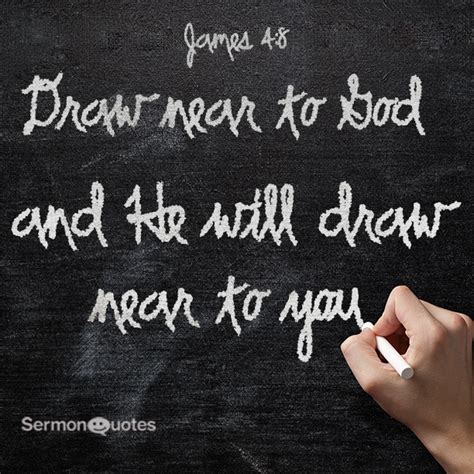 James 4:8
Draw near to God
and He will draw
near to you
SermonQuotes